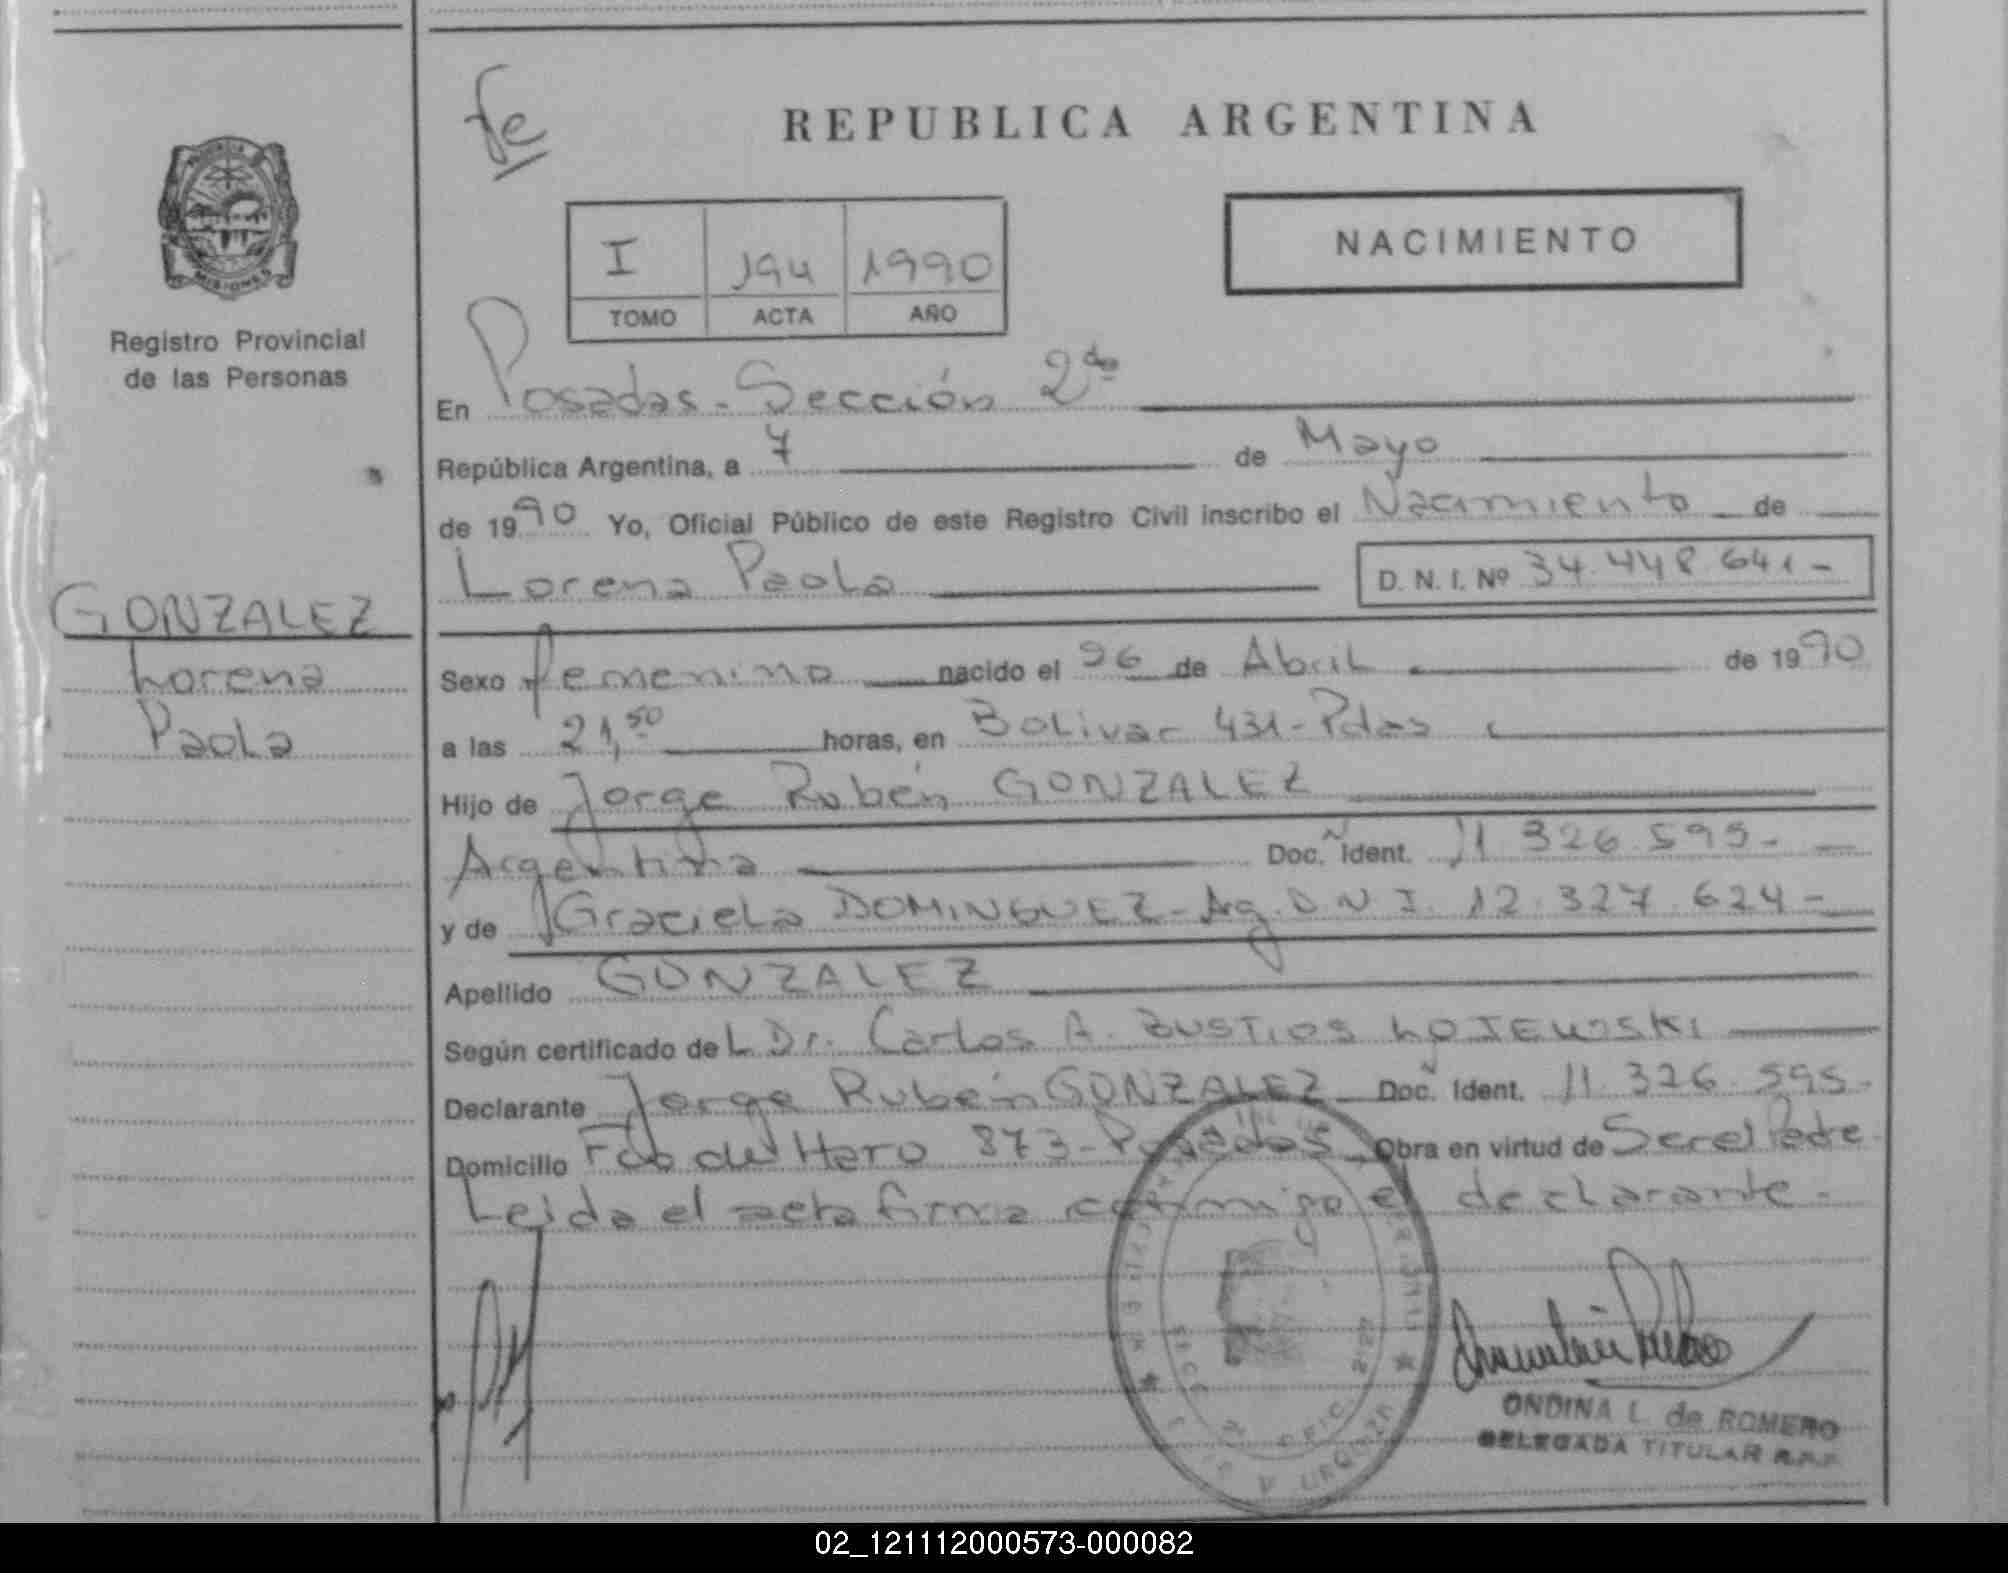 fe
REPUBLICA ARGENTINA
NACIMIENTO
I 194 1990
TOMO ACTA AÑO
PROVINCIA
MISIONES
Registro Provincial
de las Personas
GONZALEZ
Lorena
Paola
En Posadas - Sección 2da
República Argentina, a 7 de Mayo
de 1990 Yo, Oficial Público de este Registro Civil inscribo el Nacimiento de
Lorena Paola D. N. I. Nº 34.448.641-
Sexo femenino nacido el 26 de Abril de 1990
a las 21,50 horas, en Bolivar 431-Pdas
Hijo de Jorge Rubén GONZALEZ
Argentina Doc. Ñ Ident. 11.326.595-
y de Graciela DOMINGUEZ-Ag. D N I. 12.327.624-
Apellido GONZALEZ
Según certificado de L Dr. Carlos A. BUSTIOS
Declarante Jorge Rubén GONZALEZ Doc. Ñ Ident. 11.326.595-
Domicilio Fco de Haro 873-Posadas Obra en virtud de Ser el Padre
Leida el acta firma conmigo el declarante.
ONDINA L. de ROMERO
DELEGADA TITULAR R.P.P.
02_121112000573-000082